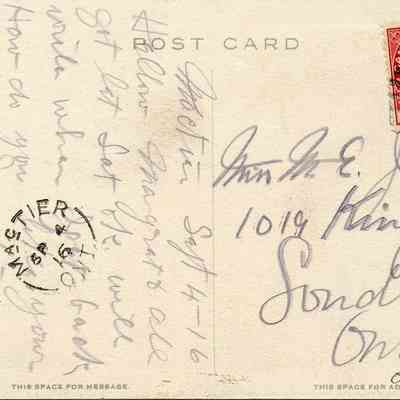 POST CARD
Mactier Sept 4-16
Hellow Margrate all
got lot Sat OK will
write when get back
How do you like your
MACTIER
SP 4
16
Miss M. E.
1019 Kin
Lond
On
THIS SPACE FOR MESSAGE.
THIS SPACE FOR AD